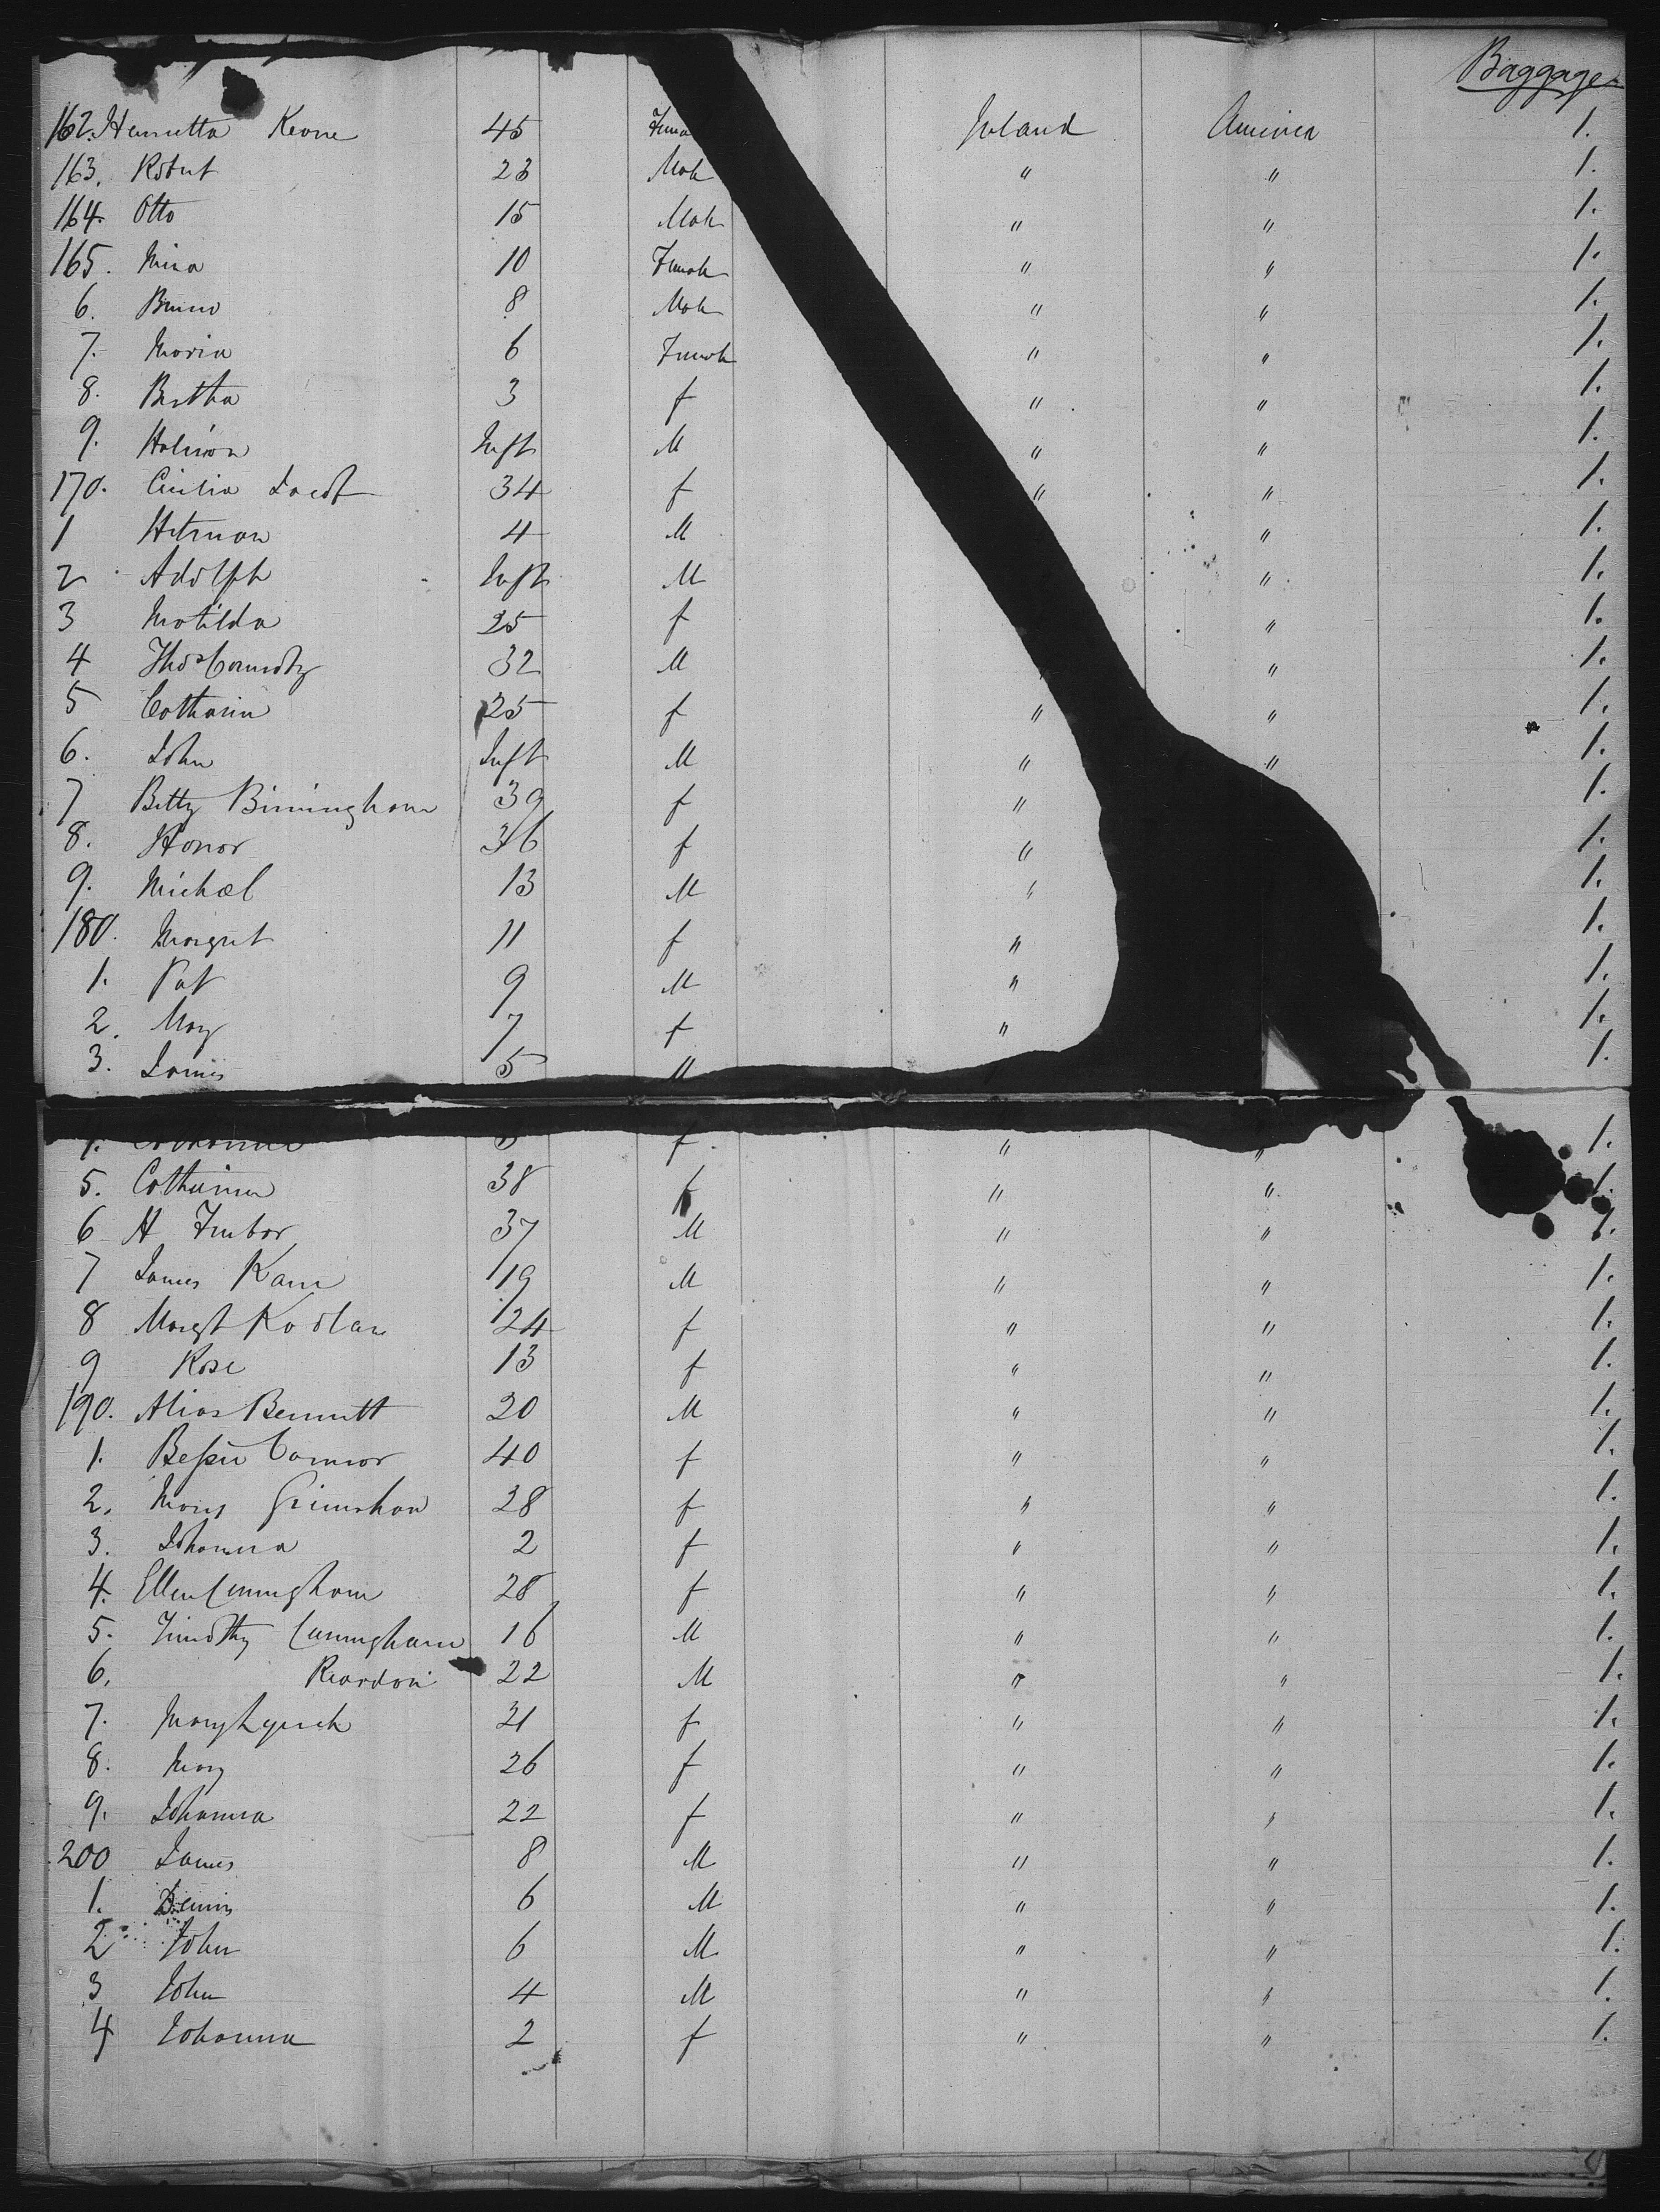 Baggage
162. Henrietta Keone 45 Ireland America 1.
163. Robert 23 Male " " 1.
164. Otto 15 Male " " 1.
165. Mina 10 Female " " 1.
6. Bruno 8 Male " " 1.
7. Maria 6 Female " " 1.
8. Bertha 3 f " " 1.
9. Inft M " " 1.
170. Cecilia 34 f " " 1.
1 Herman 4 M " 1.
2 Adolph Inft M " 1.
3 Matilda 25 f " 1.
4 Thos 32 M " 1.
5 Catharin 25 f " " 1.
6. John Inft M " " 1.
7 Betty Birmingham 39 f " 1.
8. Honor 36 f " 1.
9. Michael 13 M " 1.
180. Margret 11 f " 1.
1. Pat 9 M " 1.
2. Mary 7 f " 1.
3. James 5 M 1.
f " " 1.
5. Catherina 38 f " " 1.
6 H 37 M " " 1.
7 James Kane 19 M " " 1.
8 Margt 24 f " " 1.
9 Rose 13 f " " 1.
190. Bennett 20 M " " 1.
1. Bessie Connor 40 f " " 1.
2. Mary Grimshaw 28 f " " 1.
3. Johanna 2 f " " 1.
4. Ellen Cunningham 28 f " " 1.
5. Timothy Cuningham 16 M " " 1.
6. Reardon 22 M " " 1.
7. Mary Lynch 31 f " " 1.
8. Mary 26 f " " 1.
9. Johanna 22 f " " 1.
200 James 8 M " " 1.
1. Dennis 6 M " " 1.
2 John 6 M " " 1.
3 John 4 M " " 1.
4 Johanna 2 f " " 1.